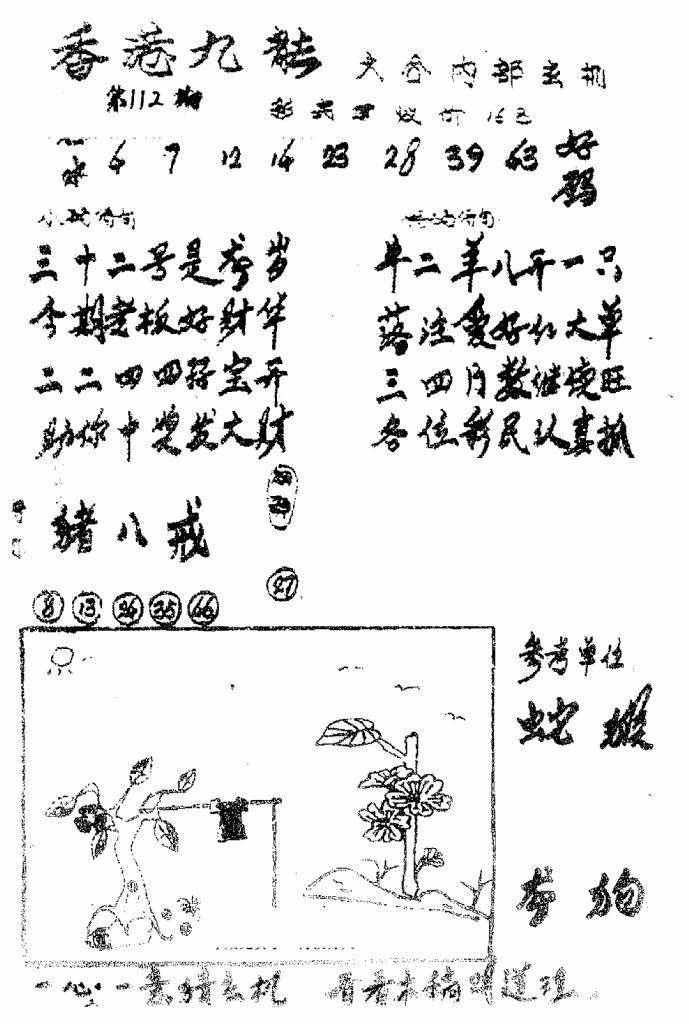 香港九龍
六合内部玄机
第112期
水 6 7 12 14 23 28 39 63 好码
三十二号是岁
今期老板好财华
二二四四好宝开
助你中奖发大财
单二羊八开一只
落注爱好红大单
三四月数继续旺
各位彩民认真抓
猪八戒
27
8 13 26 35 46
参考单位
蛇 猴
狗
一心一意猜玄机 看看木桶明道理